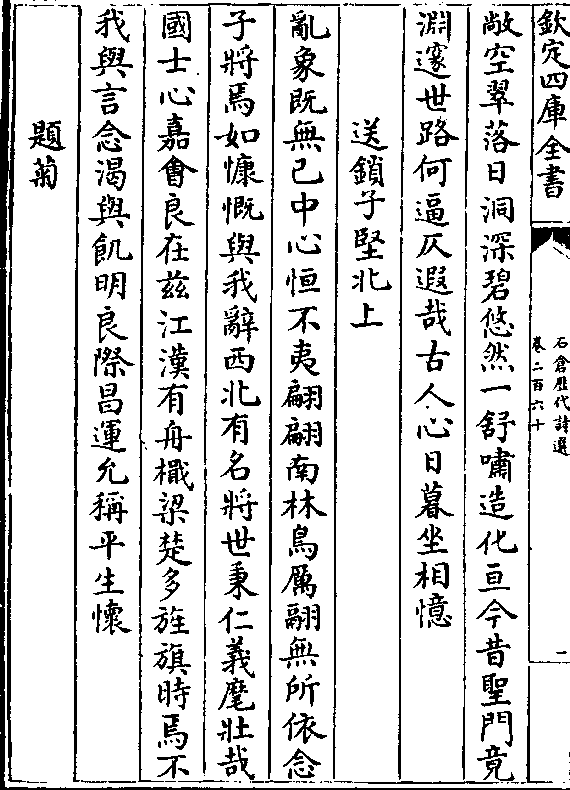 欽定四庫全書
石倉歷代詩選
卷二百六十
一
敞空翠落日洞深碧悠然一舒嘯造化亘今昔聖門竟
淵邃世路何逼仄遐哉古人心日暮坐相憶
送鎖子堅北上
亂象既無已中心恒不夷翩翩南林鳥厲翮無所依念
子將焉如慷慨與我辭西北有名將世秉仁義麾壯哉
國士心嘉會良在茲江漢有舟檝梁楚多旌旗時焉不
我與言念渴與飢明良際昌運允稱平生懷
題菊